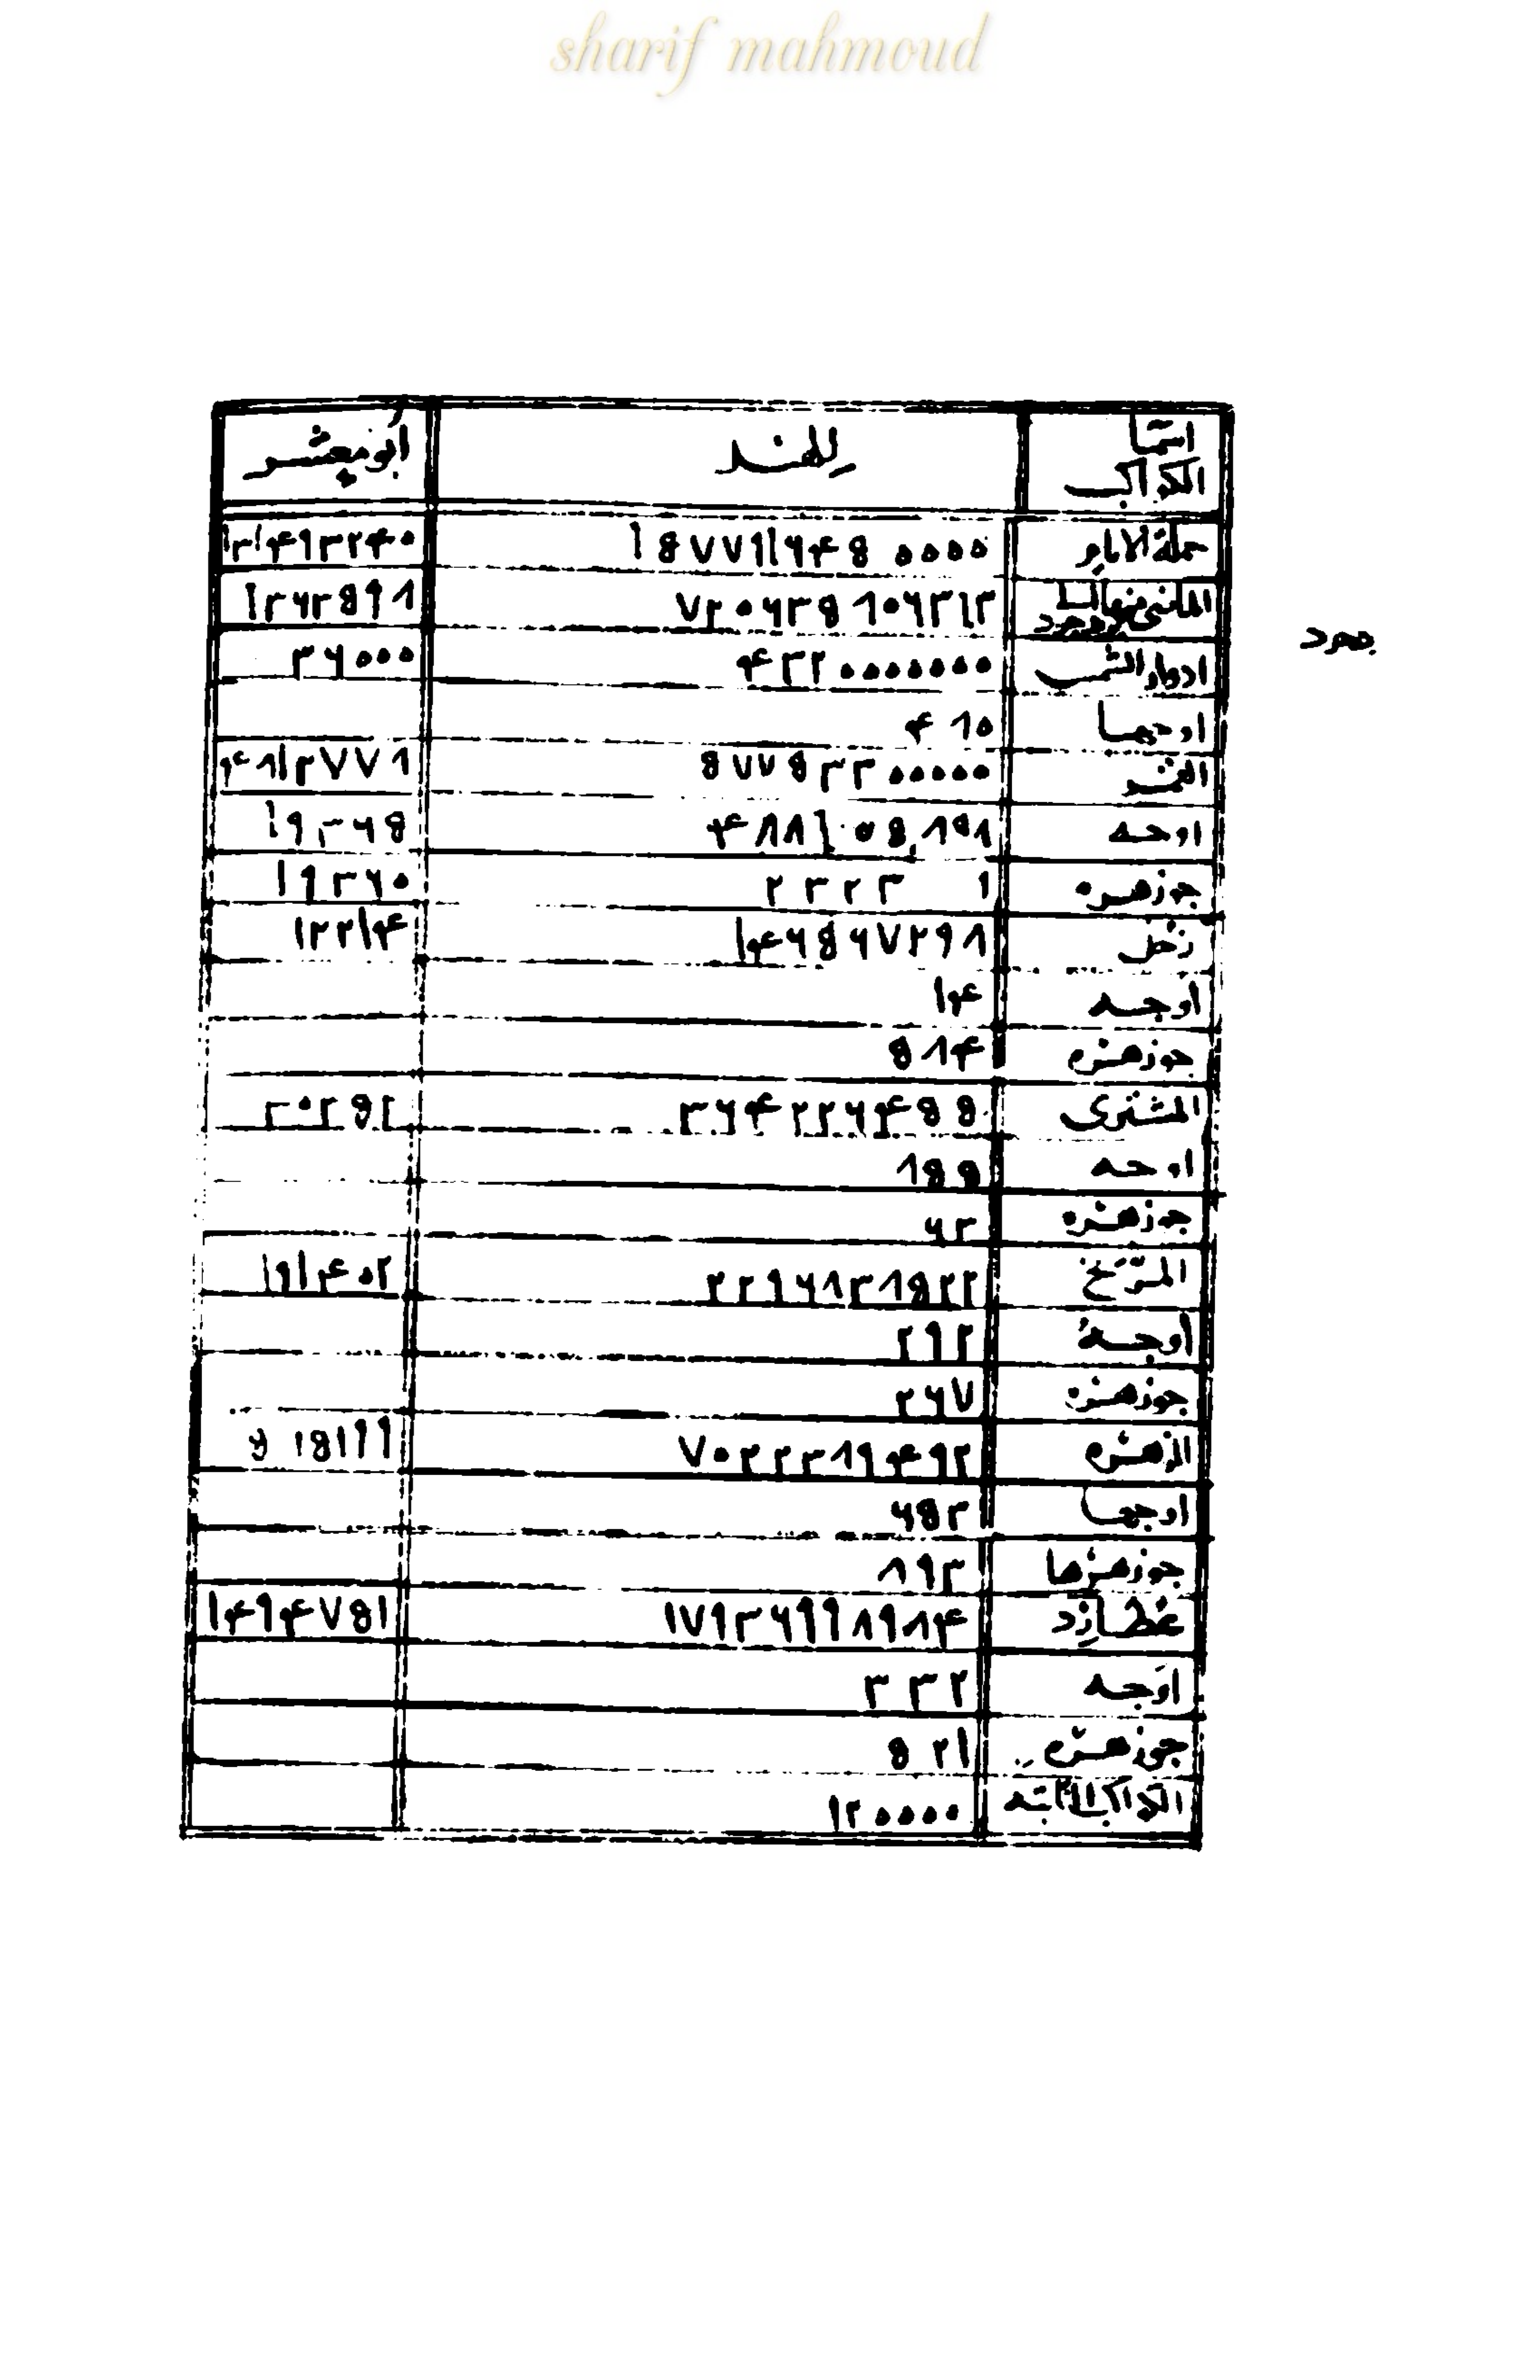 اسما الكواكب للهند أبو معشر
جملة الايام ١٥٧٧٩١٦٤٥٠٠٠٠ ١٣١٤٩٣٢٤٠
الماضى منها الى يزدجرد ٧٢٠٦٣٥٨٠٦٣١٣ ١٣٦٣٥٩٨
ادوار الشمس ٤٣٢٠٠٠٠٠٠٠ ٣٦٠٠٠
اوجها ٤٨٠
القمر ٥٧٧٥٣٣٠٠٠٠٠ ٤٨١٢٧٧٨
اوجه ٤٨٨١٠٥٨٥٨ ١٩٣٦٥
جوزهره ٢٣٢٣ ١ ١٩٣٦٠
زحل ١٤٦٥٦٧٢٩٨ ١٢٢١٤
أوجه ١٤
جوزهره ٥٨٤
المشترى ٣٦٤٢٢٦٤٥٥ ٣٠٣٥٢
اوجه ٨٥٥
جوزهره ٦٣
المريخ ٢٢٩٦٨٢٨٥٢٢ ١٩١٤٠٢
أوجه ٢٩٢
جوزهره ٢٦٧
الزهره ٧٠٢٢٣٨٩٤٩٢
اوجها ٦٥٣
جوزهرها ٨٩٣
عطارد ١٧٩٣٦٩٩٨٩٨٤ ١٤٩٤٧٥١
اوجه ٣٣٢
جوزهره ٥٢١
الكواكب الثابته ١٢٠٠٠٠
sharif mahmoud